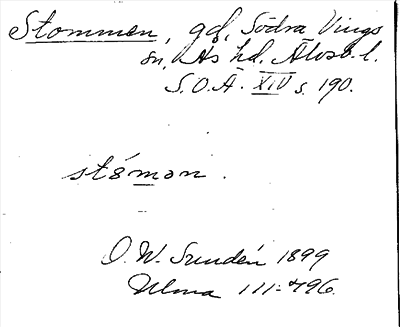 Stommen, gd, Södra Vings
sn, Ås hd. Älvsb. l.
S.O.Ä. XIV s. 190.
stómən.
O. W. Sundén 1899
Ulma 111:496.